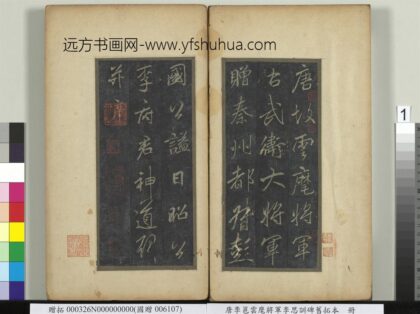 远方书画网-www.yfshuhua.com
唐故雲麾將軍
右武衛大將軍
贈秦州都督彭
國公謚曰昭公
李府君神道碑
并序
1
贈拓 000326N000000000(國贈 006107)
唐李邕雲麾將軍李思訓碑舊拓本 冊